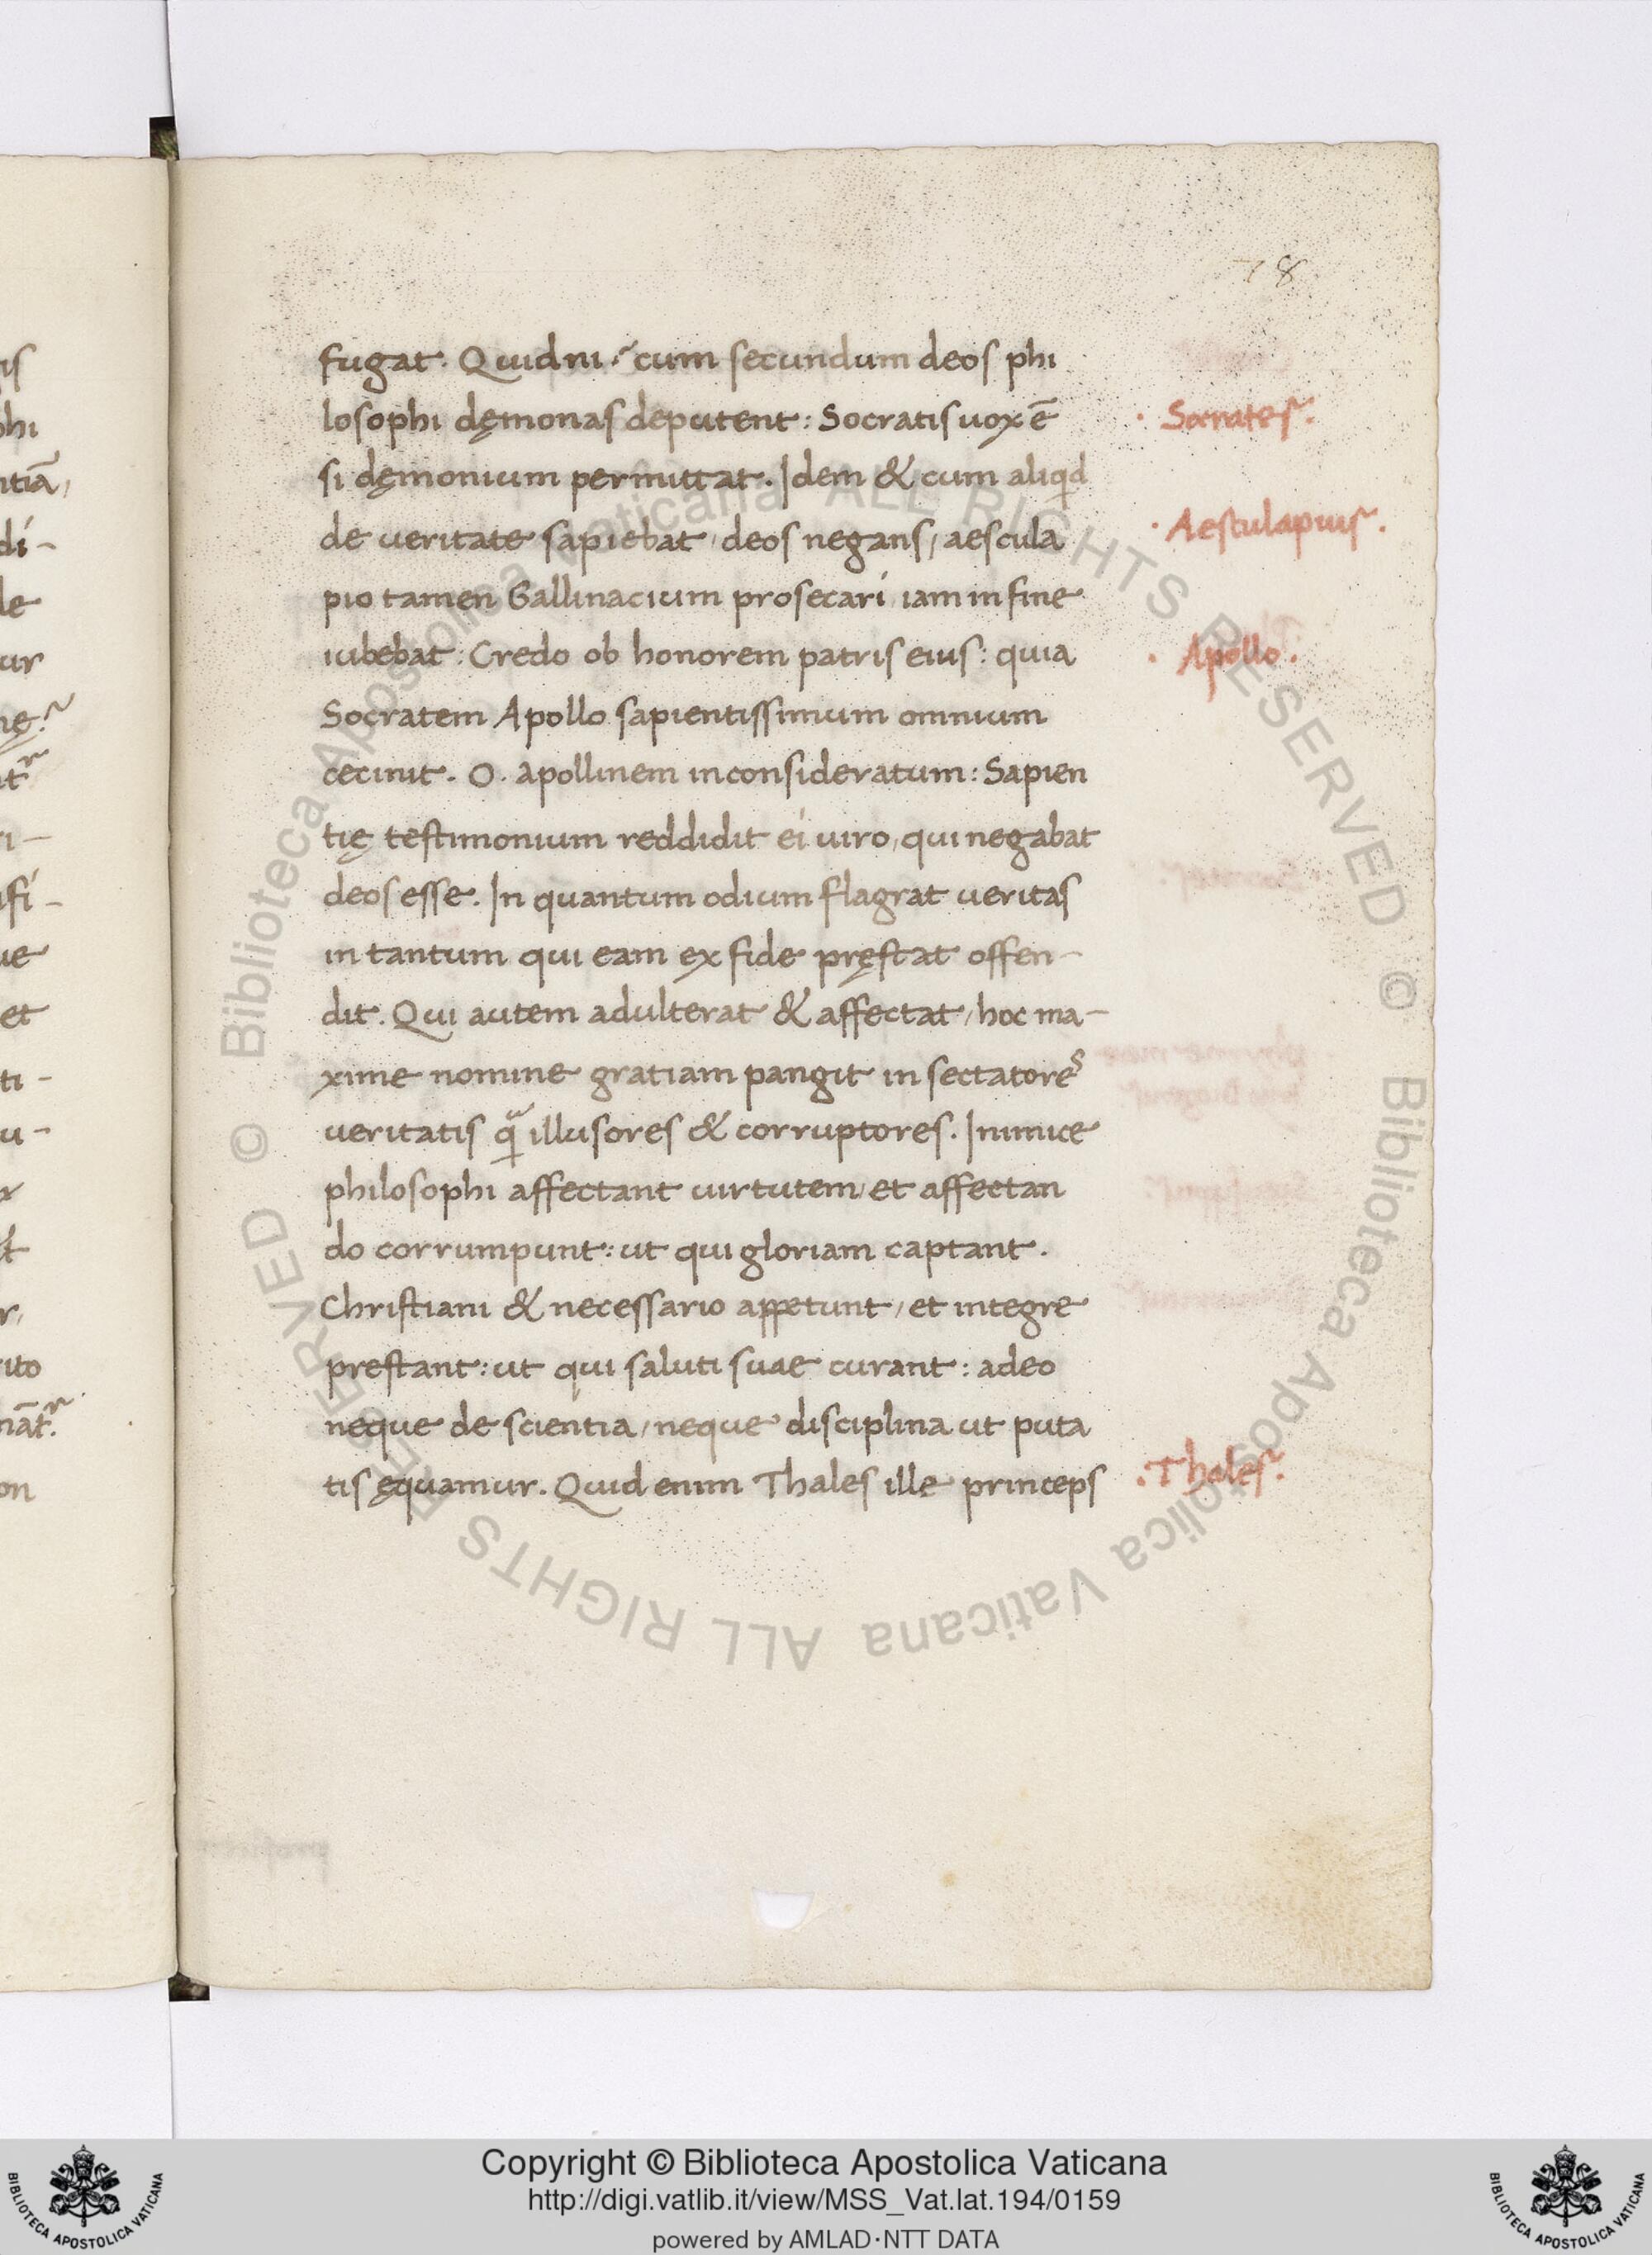 78
fugat. Quidni? cum secundum deos phi
losophi dęmonas deputent: Socratis uox ē
si dęmonium permittat. Idem & cum aliqd
de ueritate sapiebat, deos negans, aescula
pio tamen Gallinacium prosecari iam in fine
iubebat: Credo ob honorem patris eius: quia
Socratem Apollo sapientissimum omnium
cecinit. O. apollinem inconsideratum: Sapien
tię testimonium reddidit ei uiro, qui negabat
deos esse. In quantum odium flagrat ueritas
in tantum qui eam ex fide pręstat offen-
dit. Qui autem adulterat & affectat, hoc ma-
xime nomine gratiam pangit insectatores
ueritatis qᵃ illusores & corruptores. Inimice
philosophi affectant uirtutem, et affectan
do corrumpunt: ut qui gloriam captant.
Christiani & necessario appetunt, et integre
prestant: ut qui saluti suae curant: adeo
neque de scientia, neque disciplina ut puta
tis ęquamur. Quid enim Thales ille princeps
· Socrates.
· Aesculapius.
· Apollo.
· Thales.
Copyright © Biblioteca Apostolica Vaticana
http://digi.vatlib.it/view/MSS_Vat.lat.194/0159
powered by AMLAD·NTT DATA
© Biblioteca Apostolica Vaticana ALL RIGHTS RESERVED
© Biblioteca Apostolica Vaticana ALL RIGHTS RESERVED
BIBLIOTECA APOSTOLICA VATICANA
BIBLIOTECA APOSTOLICA VATICANA